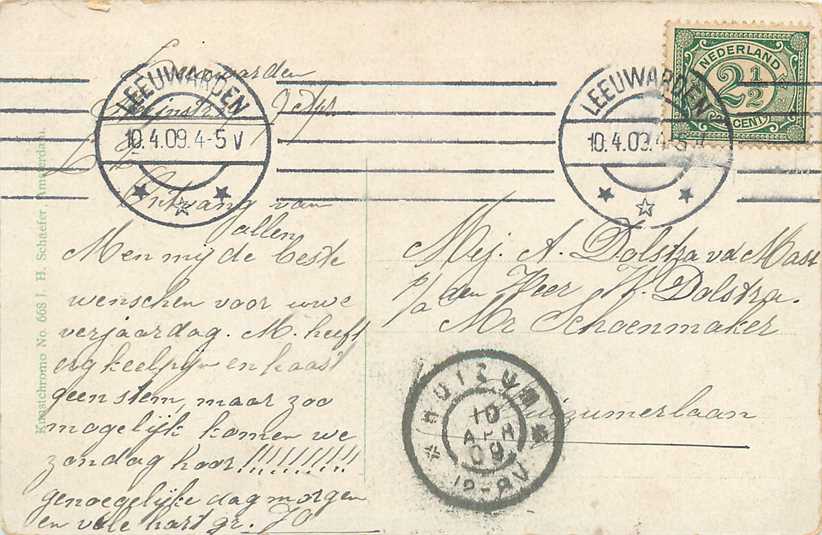 Leeuwarden
LEEUWARDEN
10.4.09.4-5 V
Ontvang van
allen
Men mij de beste
wenschen voor uwe
verjaardag. M. heeft
erg keelpijn en haast
geen stem, maar zoo
mogelijk komen we
zondag hoor!!!!!!!!!!
genoegelijke dag morgen
en vele hart gr. Jo
Kunstchromo No. 668 J. H. Schaefer, Amsterdam.
LEEUWARDEN
10.4.09.4-5 V
NEDERLAND
2½
CENT
Mej. A. Dolstra vd Mast
p/a den Heer K. Dolstra.
Mr Schoenmaker
Huizumerlaan
HUIZUM
10
APR
09
12-8V